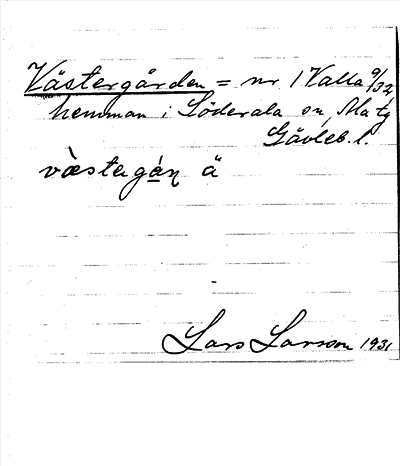 Västergården = nr 1 Valla 9/32
hemman i Söderala sn, Ala tg
Gävleb. l.
vàstagáɳ ä
Lars Larsson 1931